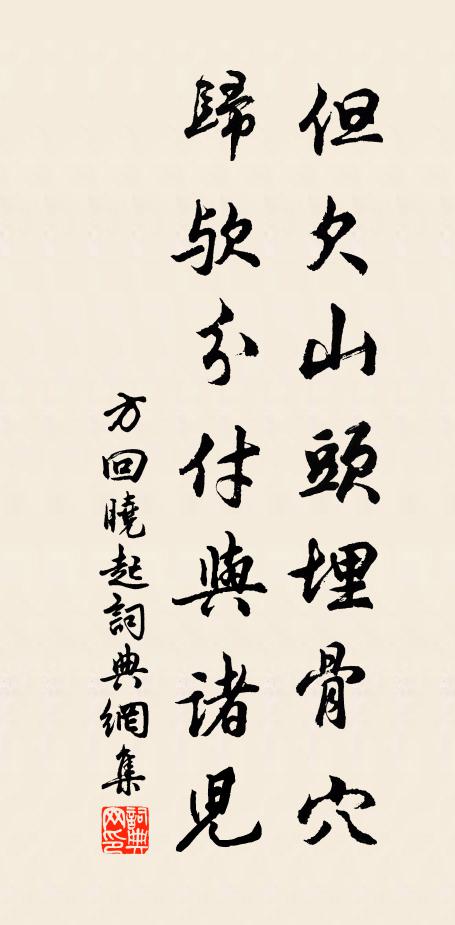 但欠山頭埋骨穴
歸歟分付與諸兒
方回曉起詞典網集
詞典网印